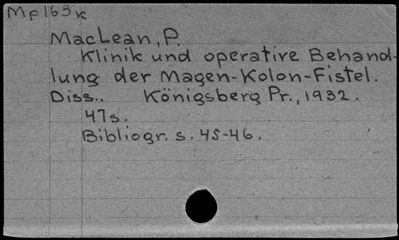 Mp163k
MacLean, P.
Klinik und operative Behand-
lung der Magen-Kolon-Fistel.
Diss.. Königsberg Pr., 1932.
47s.
Bibliogr. s. 45-46.